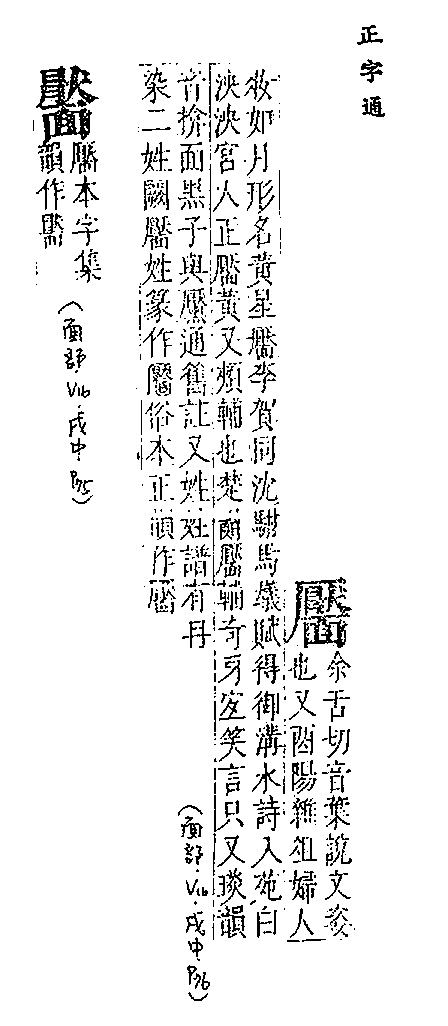 正字通
靨
余舌切音葉說文姿
也又酉陽雜俎婦人
妝如月形名黃星靨李賀同沈駙馬蟻賦得御溝水詩入苑白
泱泱宮人正靨黃又頰輔也楚靨輔奇牙宜笑言只又琰韻
音揜面黑子與黶通舊註又姓姓譜有丹
染二姓闕靨姓篆作靨俗本正韻作靨
(面部·V16·戌中 P76)
靨本字集
韻作
(面部·V16·戌中 P75)